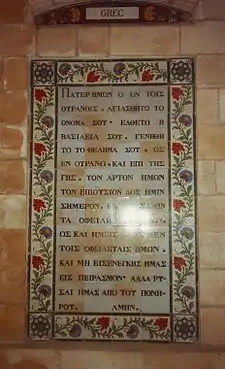 GREC
ΠΑΤΕΡ ΗΜΩΝ Ο ΕΝ ΤΟΙΣ
ΟΥΡΑΝΟΙΣ. ΑΓΙΑΣΘΗΤΟ ΤΟ
ΟΝΟΜΑ ΣΟΥ· ΕΛΘΕΤΟ Η
ΒΑΣΙΛΕΙΑ ΣΟΥ. ΓΕΝΙΘΗ
ΤΟ ΤΟ ΘΕΛΗΜΑ ΣΟΥ, ΟΣ
ΕΝ ΟΥΡΑΝΩ, ΚΑΙ ΕΠΙ ΤΗΣ
ΓΗΣ. ΤΟΝ ΑΡΤΟΝ ΗΜΩΝ
ΤΟΝ ΕΠΙΟΥΣΙΟΝ ΔΟΣ ΗΜΙΝ
ΣΗΜΕΡΟΝ.
ΤΑ ΟΦΕΙΛΗ
ΩΣ ΚΑΙ ΗΜΕΙΣ
ΤΟΙΣ ΟΦΕΙΛΕΤΑΙΣ ΗΜΩΝ.
ΚΑΙ ΜΗ ΕΙΣΕΝΕΓΚΗΣ ΗΜΑΣ
ΕΙΣ ΠΕΙΡΑΣΜΟΝ· ΑΛΛΑ ΡΥ-
ΣΑΙ ΗΜΑΣ ΑΠΟ ΤΟΥ ΠΟΝΗ
ΡΟΥ. ΑΜΗΝ.